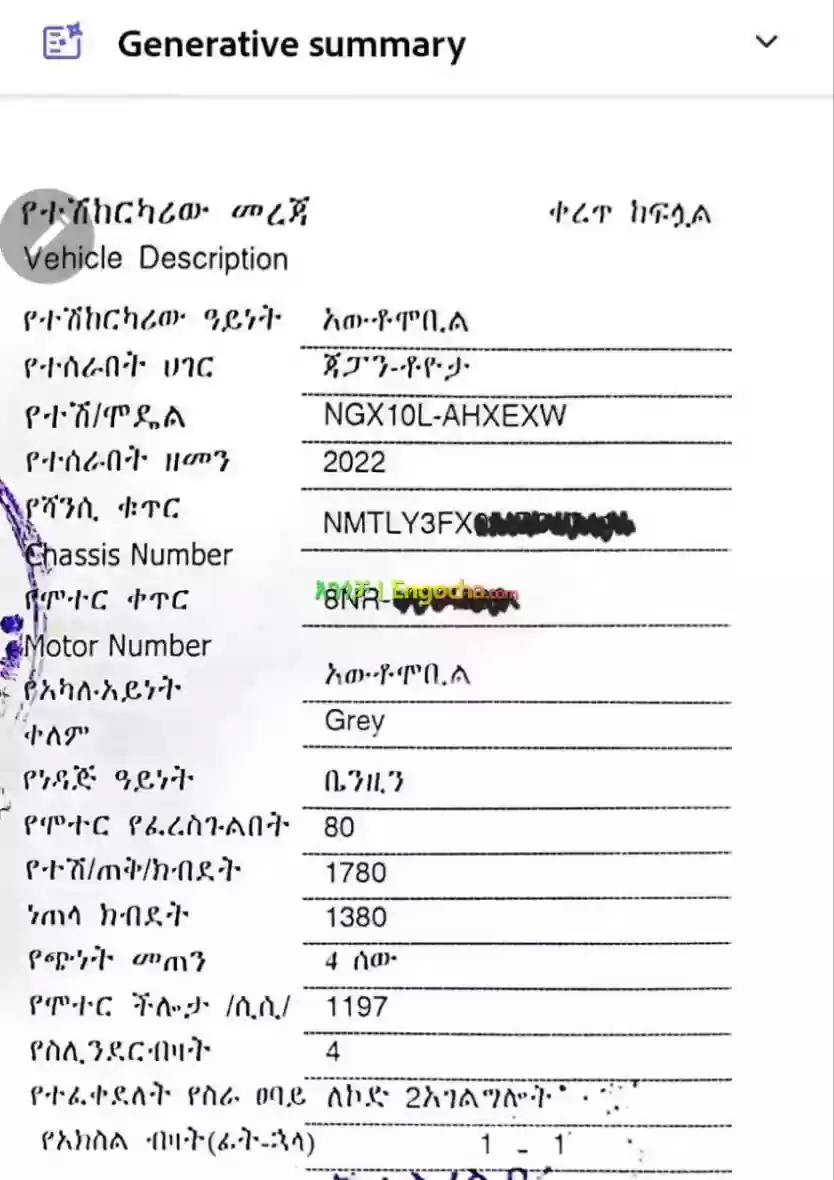 Generative summary
የተሽከርካሪው መረጃ ቀረጥ ከፍሏል
Vehicle Description
የተሽከርካሪው ዓይነት አውቶሞቢል
የተሰራበት ሀገር ጃፓን-ቶዮታ
የተሽ/ሞዴል NGX10L-AHXEXW
የተሰራበት ዘመን 2022
የሻንሲ ቁጥር NMTLY3FX
Chassis Number
የሞተር ቀጥር 8NR-
Engocha.com
Motor Number
የአካሉ አይነት አውቶሞቢል
ቀለም Grey
የነዳጅ ዓይነት ቤንዚን
የሞተር የፈረስጉልበት 80
የተሽ/ጠቅ/ክብደት 1780
ነጠላ ክብደት 1380
የጭነት መጠን 4 ሰው
የሞተር ችሎታ /ሲሲ/ 1197
የስሊንደር ብዛት 4
የተፈቀደለት የስራ ዐባይ ለኮድ 2አገልግሎት
የአክስል ብዛት(ፊት-ኋላ) 1 - 1